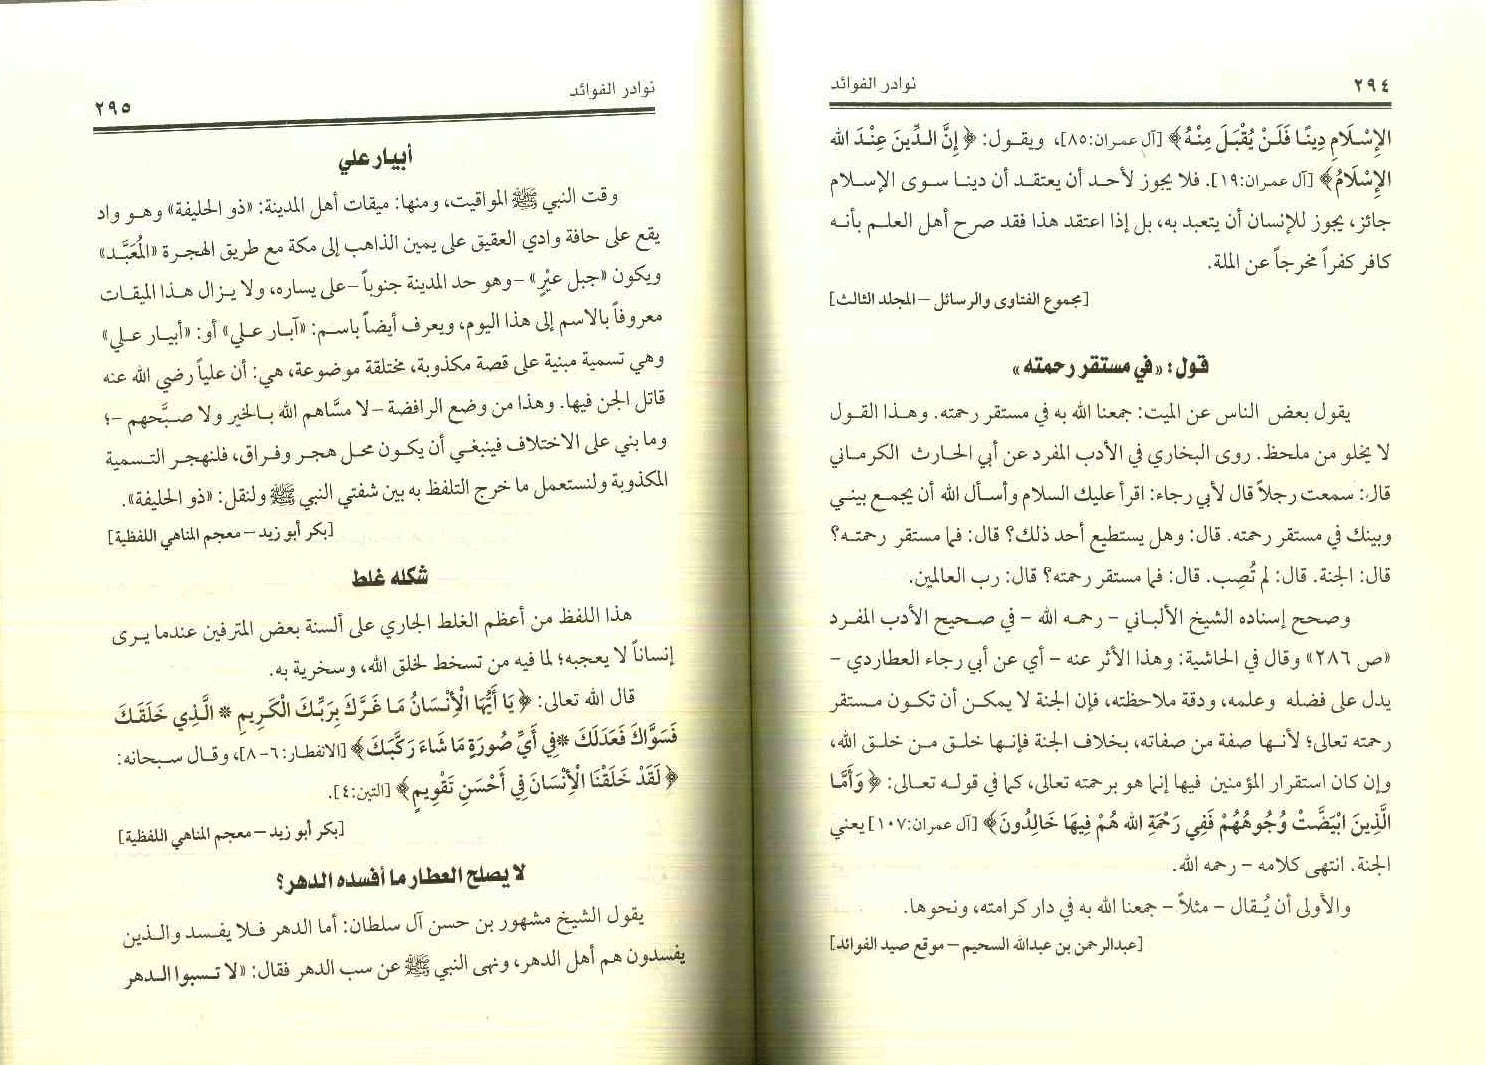 ٢٩٤
نوادر الفوائد
الإِسْلَامِ دِينًا فَلَنْ يُقْبَلَ مِنْهُ﴾ [آل عمران:٨٥]، ويقول: ﴿إِنَّ الدِّينَ عِنْدَ الله
الإِسْلَامُ﴾ [آل عمران:١٩]. فلا يجوز لأحد أن يعتقد أن دينا سوى الإسلام
جائز، يجوز للإنسان أن يتعبد به، بل إذا اعتقد هذا فقد صرح أهل العلم بأنه
كافر كفراً مخرجاً عن الملة.
[مجموع الفتاوى والرسائل – المجلد الثالث]
قول: «في مستقر رحمته»
يقول بعض الناس عن الميت: جمعنا الله به في مستقر رحمته. وهذا القول
لا يخلو من ملحظ. روى البخاري في الأدب المفرد عن أبي الحارث الكرماني
قال: سمعت رجلاً قال لأبي رجاء: اقرأ عليك السلام وأسأل الله أن يجمع بيني
وبينك في مستقر رحمته. قال: وهل يستطيع أحد ذلك؟ قال: فما مستقر رحمته؟
قال: الجنة. قال: لم تُصِب. قال: فما مستقر رحمته؟ قال: رب العالمين.
وصحح إسناده الشيخ الألباني – رحمه الله – في صحيح الأدب المفرد
«ص ٢٨٦» وقال في الحاشية: وهذا الأثر عنه – أي عن أبي رجاء العطاردي –
يدل على فضله وعلمه، ودقة ملاحظته، فإن الجنة لا يمكن أن تكون مستقر
رحمته تعالى؛ لأنها صفة من صفاته، بخلاف الجنة فإنها خلق من خلق الله،
وإن كان استقرار المؤمنين فيها إنما هو برحمته تعالى، كما في قوله تعالى: ﴿وَأَمَّا
الَّذِينَ ابْيَضَّتْ وُجُوهُهُمْ فَفِي رَحْمَةِ الله هُمْ فِيهَا خَالِدُونَ﴾ [آل عمران:١٠٧] يعني
الجنة. انتهى كلامه – رحمه الله.
والأولى أن يُقال – مثلاً – جمعنا الله به في دار كرامته، ونحوها.
[عبدالرحمن بن عبدالله السحيم – موقع صيد الفوائد]
نوادر الفوائد
٢٩٥
أبيار علي
وقت النبي ﷺ المواقيت، ومنها: ميقات أهل المدينة: «ذو الحليفة» وهو واد
يقع على حافة وادي العقيق على يمين الذاهب إلى مكة مع طريق الهجرة «المُعَبَّد»
ويكون «جبل عيْرٍ» – وهو حد المدينة جنوباً – على يساره، ولا يزال هذا الميقات
معروفاً بالاسم إلى هذا اليوم، ويعرف أيضاً باسم: «آبار علي» أو: «أبيار علي»
وهي تسمية مبنية على قصة مكذوبة، مختلقة موضوعة، هي: أن علياً رضي الله عنه
قاتل الجن فيها. وهذا من وضع الرافضة – لا مسَّاهم الله بالخير ولا صبَّحهم –؛
وما بني على الاختلاف فينبغي أن يكون محل هجر وفراق، فلنهجر التسمية
المكذوبة ولنستعمل ما خرج التلفظ به بين شفتي النبي ﷺ ولنقل: «ذو الحليفة».
[بكر أبو زيد – معجم المناهي اللفظية]
شكله غلط
هذا اللفظ من أعظم الغلط الجاري على ألسنة بعض المترفين عندما يرى
إنساناً لا يعجبه؛ لما فيه من تسخط لخلق الله، وسخرية به.
قال الله تعالى: ﴿يَا أَيُّهَا الْأِنْسَانُ مَا غَرَّكَ بِرَبِّكَ الْكَرِيمِ * الَّذِي خَلَقَكَ
فَسَوَّاكَ فَعَدَلَكَ *فِي أَيِّ صُورَةٍ مَا شَاءَ رَكَّبَكَ﴾ [الانفطار:٦-٨]، وقال سبحانه:
﴿لَقَدْ خَلَقْنَا الْأِنْسَانَ فِي أَحْسَنِ تَقْوِيمٍ﴾ [التين:٤].
[بكر أبو زيد – معجم المناهي اللفظية]
لا يصلح العطار ما أفسده الدهر؟
يقول الشيخ مشهور بن حسن آل سلطان: أما الدهر فلا يفسد والذين
يفسدون هم أهل الدهر، ونهى النبي ﷺ عن سب الدهر فقال: «لا تسبوا الدهر